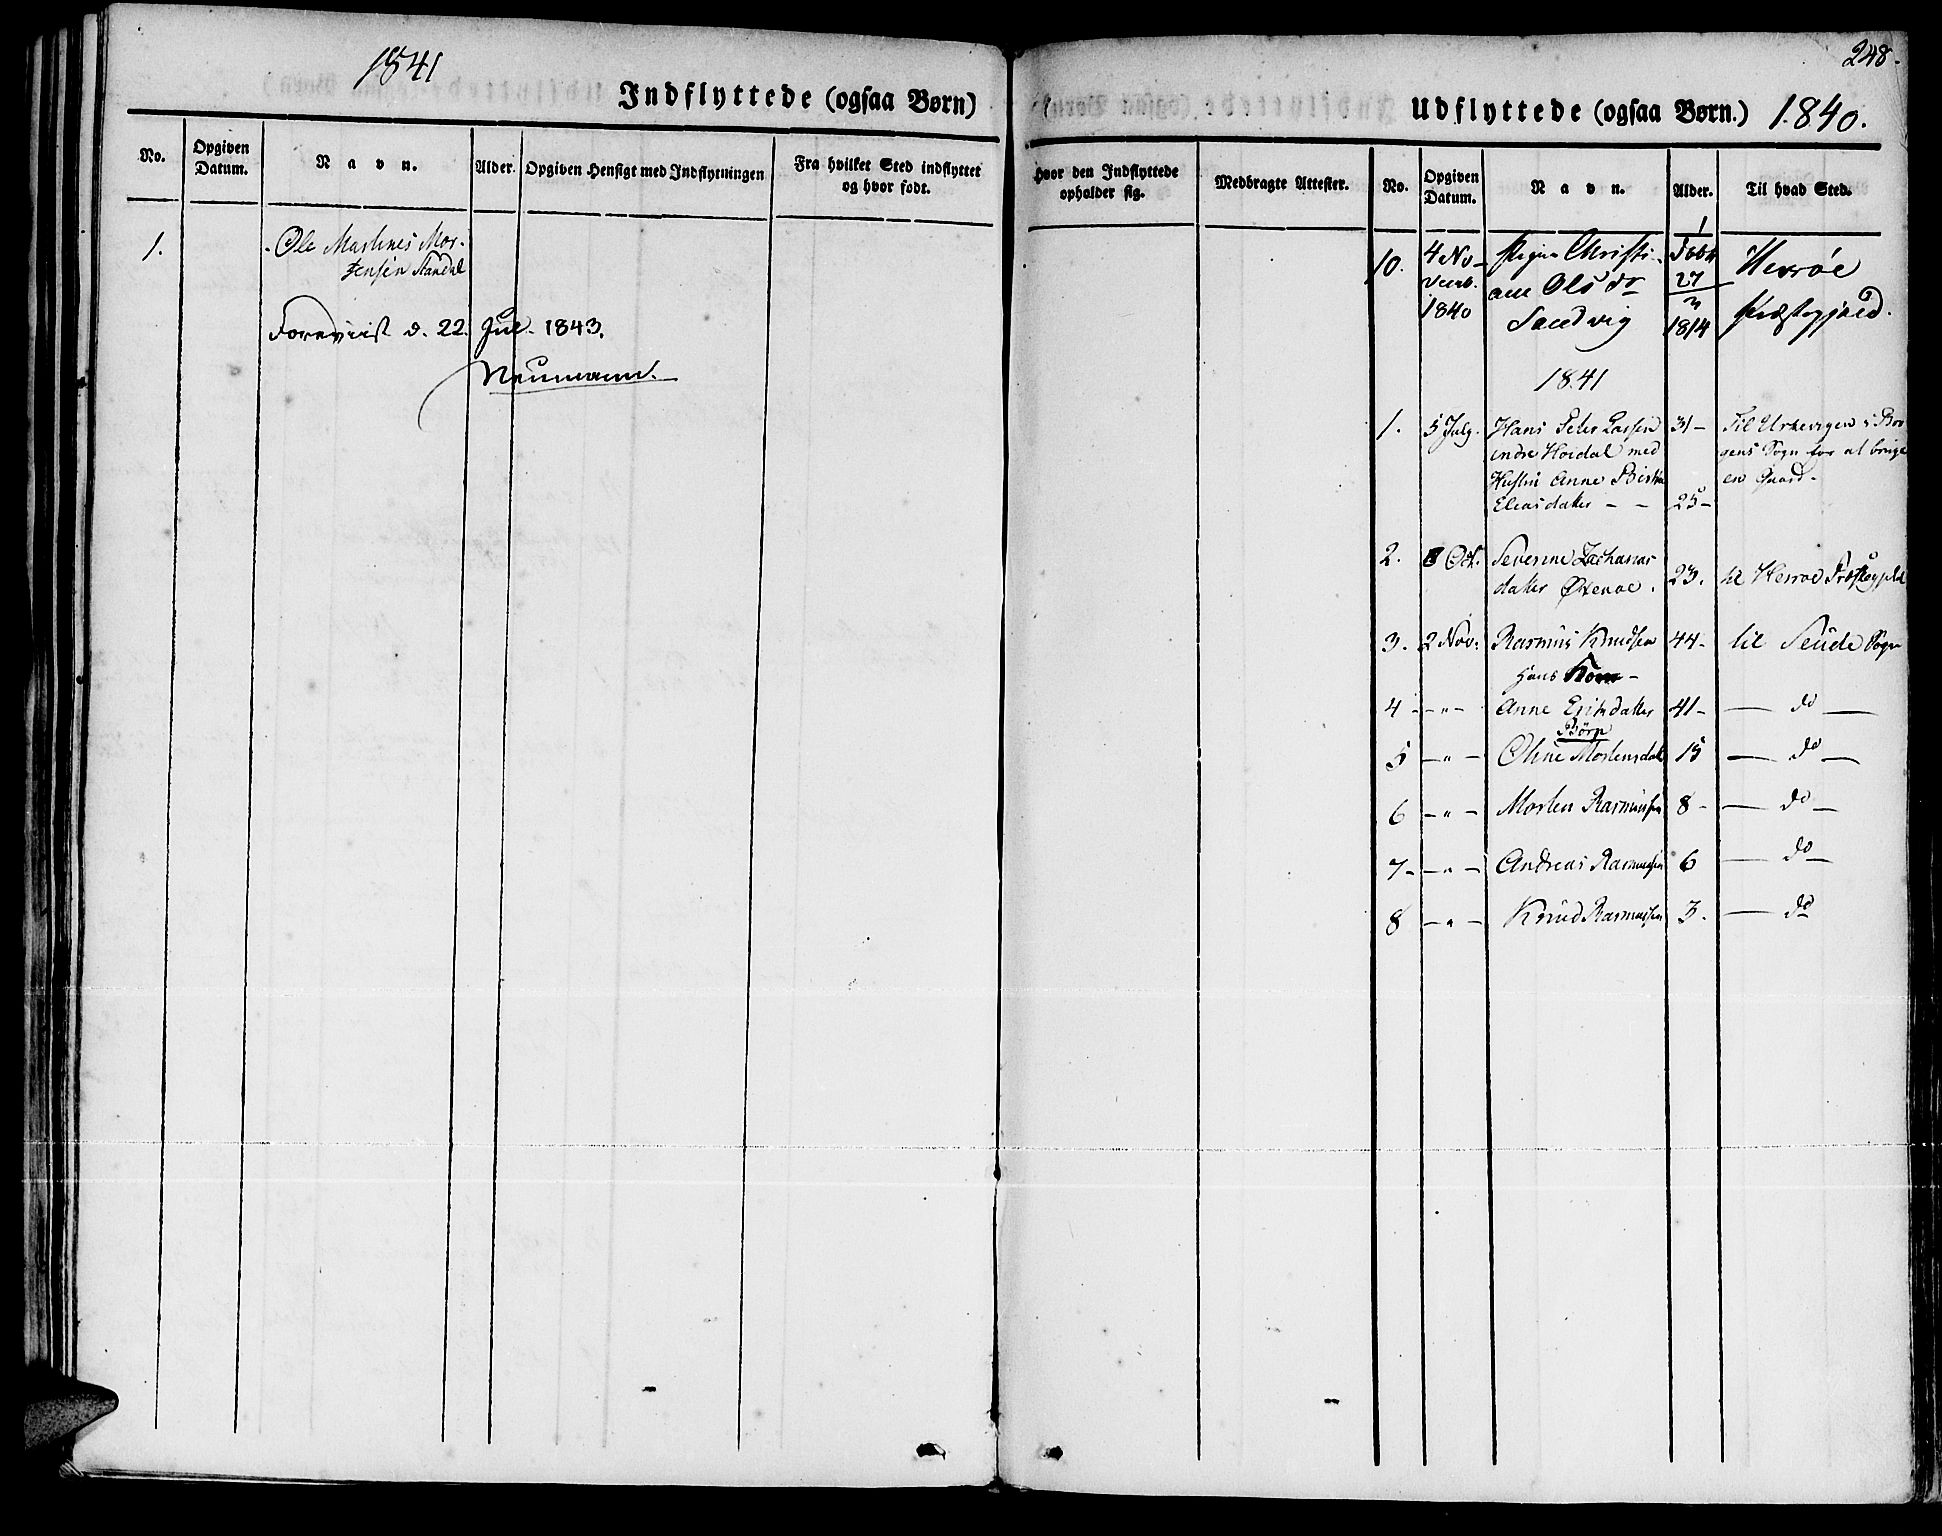 1841
Indflyttede (ogsaa Børn)
No.
Opgiven Datum.
Navn.
Alder.
Opgiven Hensigt med Indflytningen
Fra hvilket Sted indflyttet og hvor født.
1.
Ole Martines Mor-
tensen Standal
Foreviist d. 22. Jul. 1843.
Neumann.
248.
Udflyttede (ogsaa Børn.) 1840.
Hvor den Indflyttede opholder sig.
Medbragte Attester.
No.
Opgiven Datum.
Navn.
Alder.
Til hvad Sted.
10. 4 No- Pigen Christi- født Herrøe
vemb. ane Olsdr 27/3 Præstegjæld.
1840 Sandvig 1814
1841
1. 5 July. Hans Peter Lassen 31- Til Urkevigen i Bor-
indre Hoidal med gens Sogn for at bruge
Hustru Anne Birthe en Gaard.
Eliasdatter - - 25-
2. 8 Oct. Severine Zacharias
datter Øxenoe. 23. til Herroe Præstegjeld
3. 2 Nov. Rasmus Knudsen 44- til Seude Sogn
hans Kone-
4 - - " - Anne Eriksdatter 41- — do —
Børn
5 - " - Oline Mortensdat 15 — do —
6 - " - Morten Rasmussen 8 - — do —
7 - - " - Andreas Rasmussen 6 — do —
8 - " - Knud Rasmussen 3. — do